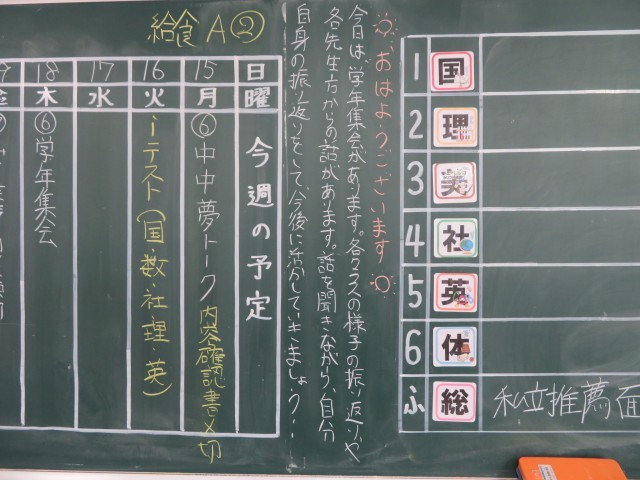 給食 A②
日 曜 今週の予定
15 月 ⑥中中夢トーク 内容確認書〆切
16 火 iテスト(国・数・社・理・英)
17 水
18 木 ⑥学年集会
おはようございます
今日は、学年集会があります。各クラスの様子の振り返りや
各先生方からの話があります。話を聞きながら、自分
自身の振り返りをして、今後に活かしていきましょう!
1 国
2 理
3 美
4 社
5 英
6 体
ふ 総 私立推薦面